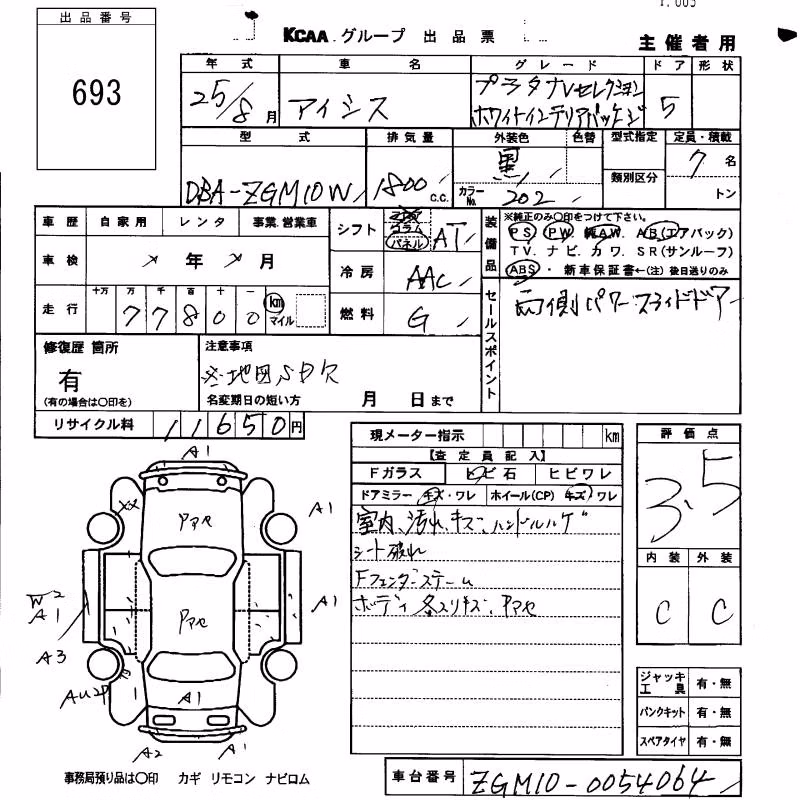 出品番号
693
KCAA グループ 出品票
主催者用
年式 車名 グレード ドア 形状
25/8月 アイシス プラタナVセレクション 5
ホワイトインテリアパッケージ
型式 排気量 外装色 色替 型式指定 定員・積載
DBA-ZGM10W 1800 c.c. 黒 類別区分 7名
カラーNo. 202 トン
車歴 自家用 レンタ 事業.営業車
シフト コラム パネル AT
車検 年 月
冷房 AAC
走行 十万 万 千 百 十 一
77800 km マイル
燃料 G
装備品 ※純正のみ〇印をつけて下さい。
PS PW AW. AB(エアバック)
TV. ナビ. カワ. SR(サンルーフ)
ABS・新車保証書←(注)後日送りのみ
セールスポイント
両側パワースライドドアー
修復歴 箇所
有
(有の場合は〇印を)
注意事項
※地図SD欠
名変期日の短い方 月 日まで
リサイクル料 11650円
現メーター指示 km
【査定員記入】
Fガラス ヒビ石 ヒビワレ
ドアミラー キズ・ワレ ホイール(CP) キズ ワレ
室内、汚れ、キズ、ハンドルハゲ
シート破れ
Fフェンダーステーム
ボディ 各スリキズ、Pアセ
評価点
3.5
内装 外装
C C
ジャッキ工具 有・無
パンクキット 有・無
スペアタイヤ 有・無
A1
XX
Pアセ
A1
W2
A1
A1
Pアセ
A3
AU2P
A1
A2
A1
事務局預り品は〇印 カギ リモコン ナビロム
車台番号 ZGM10-0054064